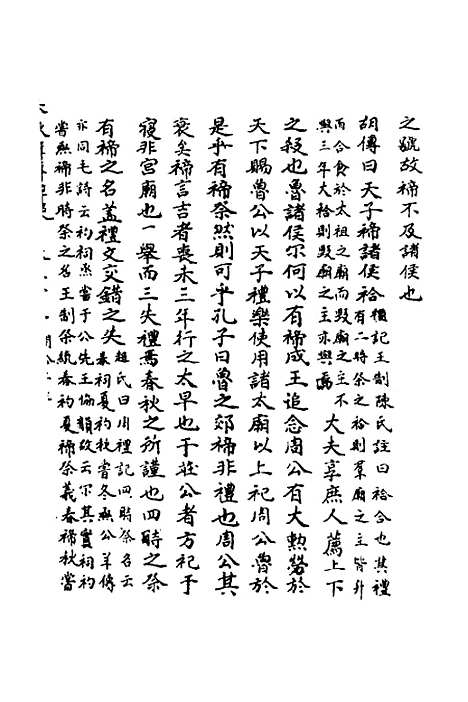 之號故禘不及諸侯也
胡傳曰天子禘諸侯祫禮記王制陳氏註曰祫合也其禮
有二時祭之祫則羣廟之主皆升
而合食於太祖之廟而毀廟之主不
與三年大祫則毀廟之主亦與焉大夫享庶人薦上下
之殺也魯諸侯尔何以有禘成王追念周公有大勲勞於
天下賜魯公以天子禮樂使用諸太廟以上祀周公魯於
是乎有禘祭然則可乎孔子曰魯之郊禘非禮也周公其
衰矣禘言吉者喪未三年行之太早也于莊公者方祀于
寢非宮廟也一舉而三失禮焉春秋之所謹也四時之祭
有禘之名蓋禮文交錯之失趙氏曰周禮記四時祭名云
春祠夏礿秋嘗冬烝公羊傳
亦同毛詩云礿祠烝嘗于公先王倫韻故云尔其實祠礿
嘗烝禘非時祭之名王制祭統春礿夏禘祭義春禘秋嘗